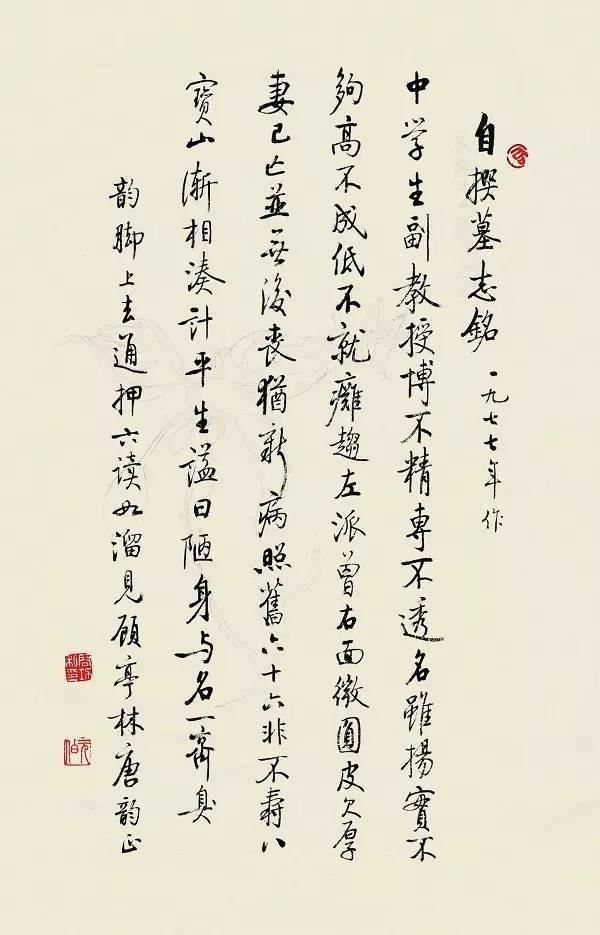 自撰墓志銘 一九七七年作
中学生副教授博不精專不透名雖揚實不
夠高不成低不就癱趨左派曾右面微圓皮欠厚
妻已亡並無後喪猶新病照舊六十六非不壽八
寶山漸相湊計平生諡曰陋身与名一齊臭
韵脚上去通押六读如溜見顾亭林唐韵正